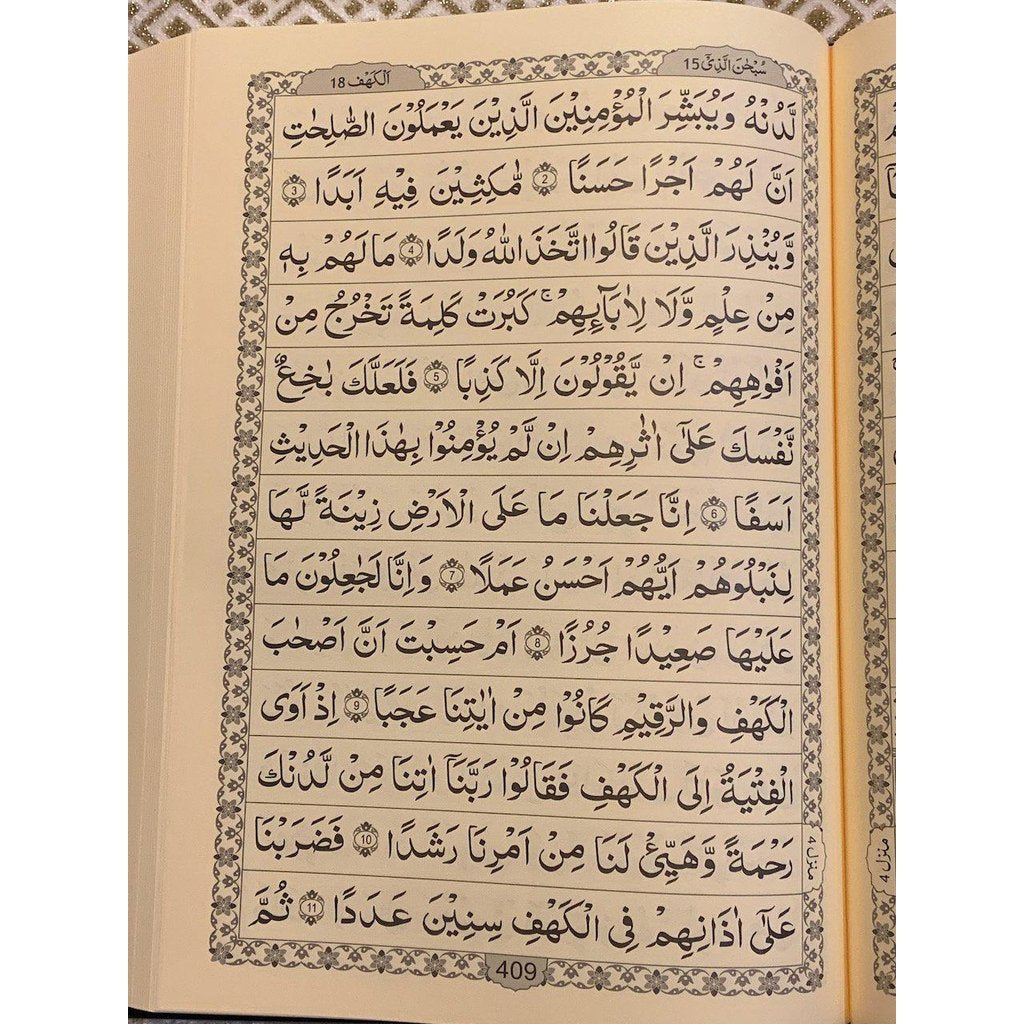 سُبْحٰنَ الَّذِیْۤ 15
اَلْكَهْف 18
لَّدُنْهُ وَیُبَشِّرَ الْمُؤْمِنِیْنَ الَّذِیْنَ یَعْمَلُوْنَ الصّٰلِحٰتِ
اَنَّ لَهُمْ اَجْرًا حَسَنًا 2 مّٰكِثِیْنَ فِیْهِ اَبَدًا 3
وَّیُنْذِرَ الَّذِیْنَ قَالُوا اتَّخَذَ اللّٰهُ وَلَدًا 4 مَا لَهُمْ بِهٖ
مِنْ عِلْمٍ وَّلَا لِاٰبَآىِٕهِمْ ۚ كَبُرَتْ كَلِمَةً تَخْرُجُ مِنْ
اَفْوَاهِهِمْ ۚ اِنْ یَّقُوْلُوْنَ اِلَّا كَذِبًا 5 فَلَعَلَّكَ بٰخِعٌ
نَّفْسَكَ عَلٰۤی اٰثٰرِهِمْ اِنْ لَّمْ یُؤْمِنُوْا بِهٰذَا الْحَدِیْثِ
اَسَفًا 6 اِنَّا جَعَلْنَا مَا عَلَی الْاَرْضِ زِیْنَةً لَّهَا
لِنَبْلُوَهُمْ اَیُّهُمْ اَحْسَنُ عَمَلًا 7 وَاِنَّا لَجٰعِلُوْنَ مَا
عَلَیْهَا صَعِیْدًا جُرُزًا 8 اَمْ حَسِبْتَ اَنَّ اَصْحٰبَ
الْكَهْفِ وَالرَّقِیْمِ كَانُوْا مِنْ اٰیٰتِنَا عَجَبًا 9 اِذْ اَوَی
الْفِتْیَةُ اِلَی الْكَهْفِ فَقَالُوْا رَبَّنَاۤ اٰتِنَا مِنْ لَّدُنْكَ
رَحْمَةً وَّهَیِّئْ لَنَا مِنْ اَمْرِنَا رَشَدًا 10 فَضَرَبْنَا
عَلٰۤی اٰذَانِهِمْ فِی الْكَهْفِ سِنِیْنَ عَدَدًا 11 ثُمَّ
منزل 4
409
منزل 4